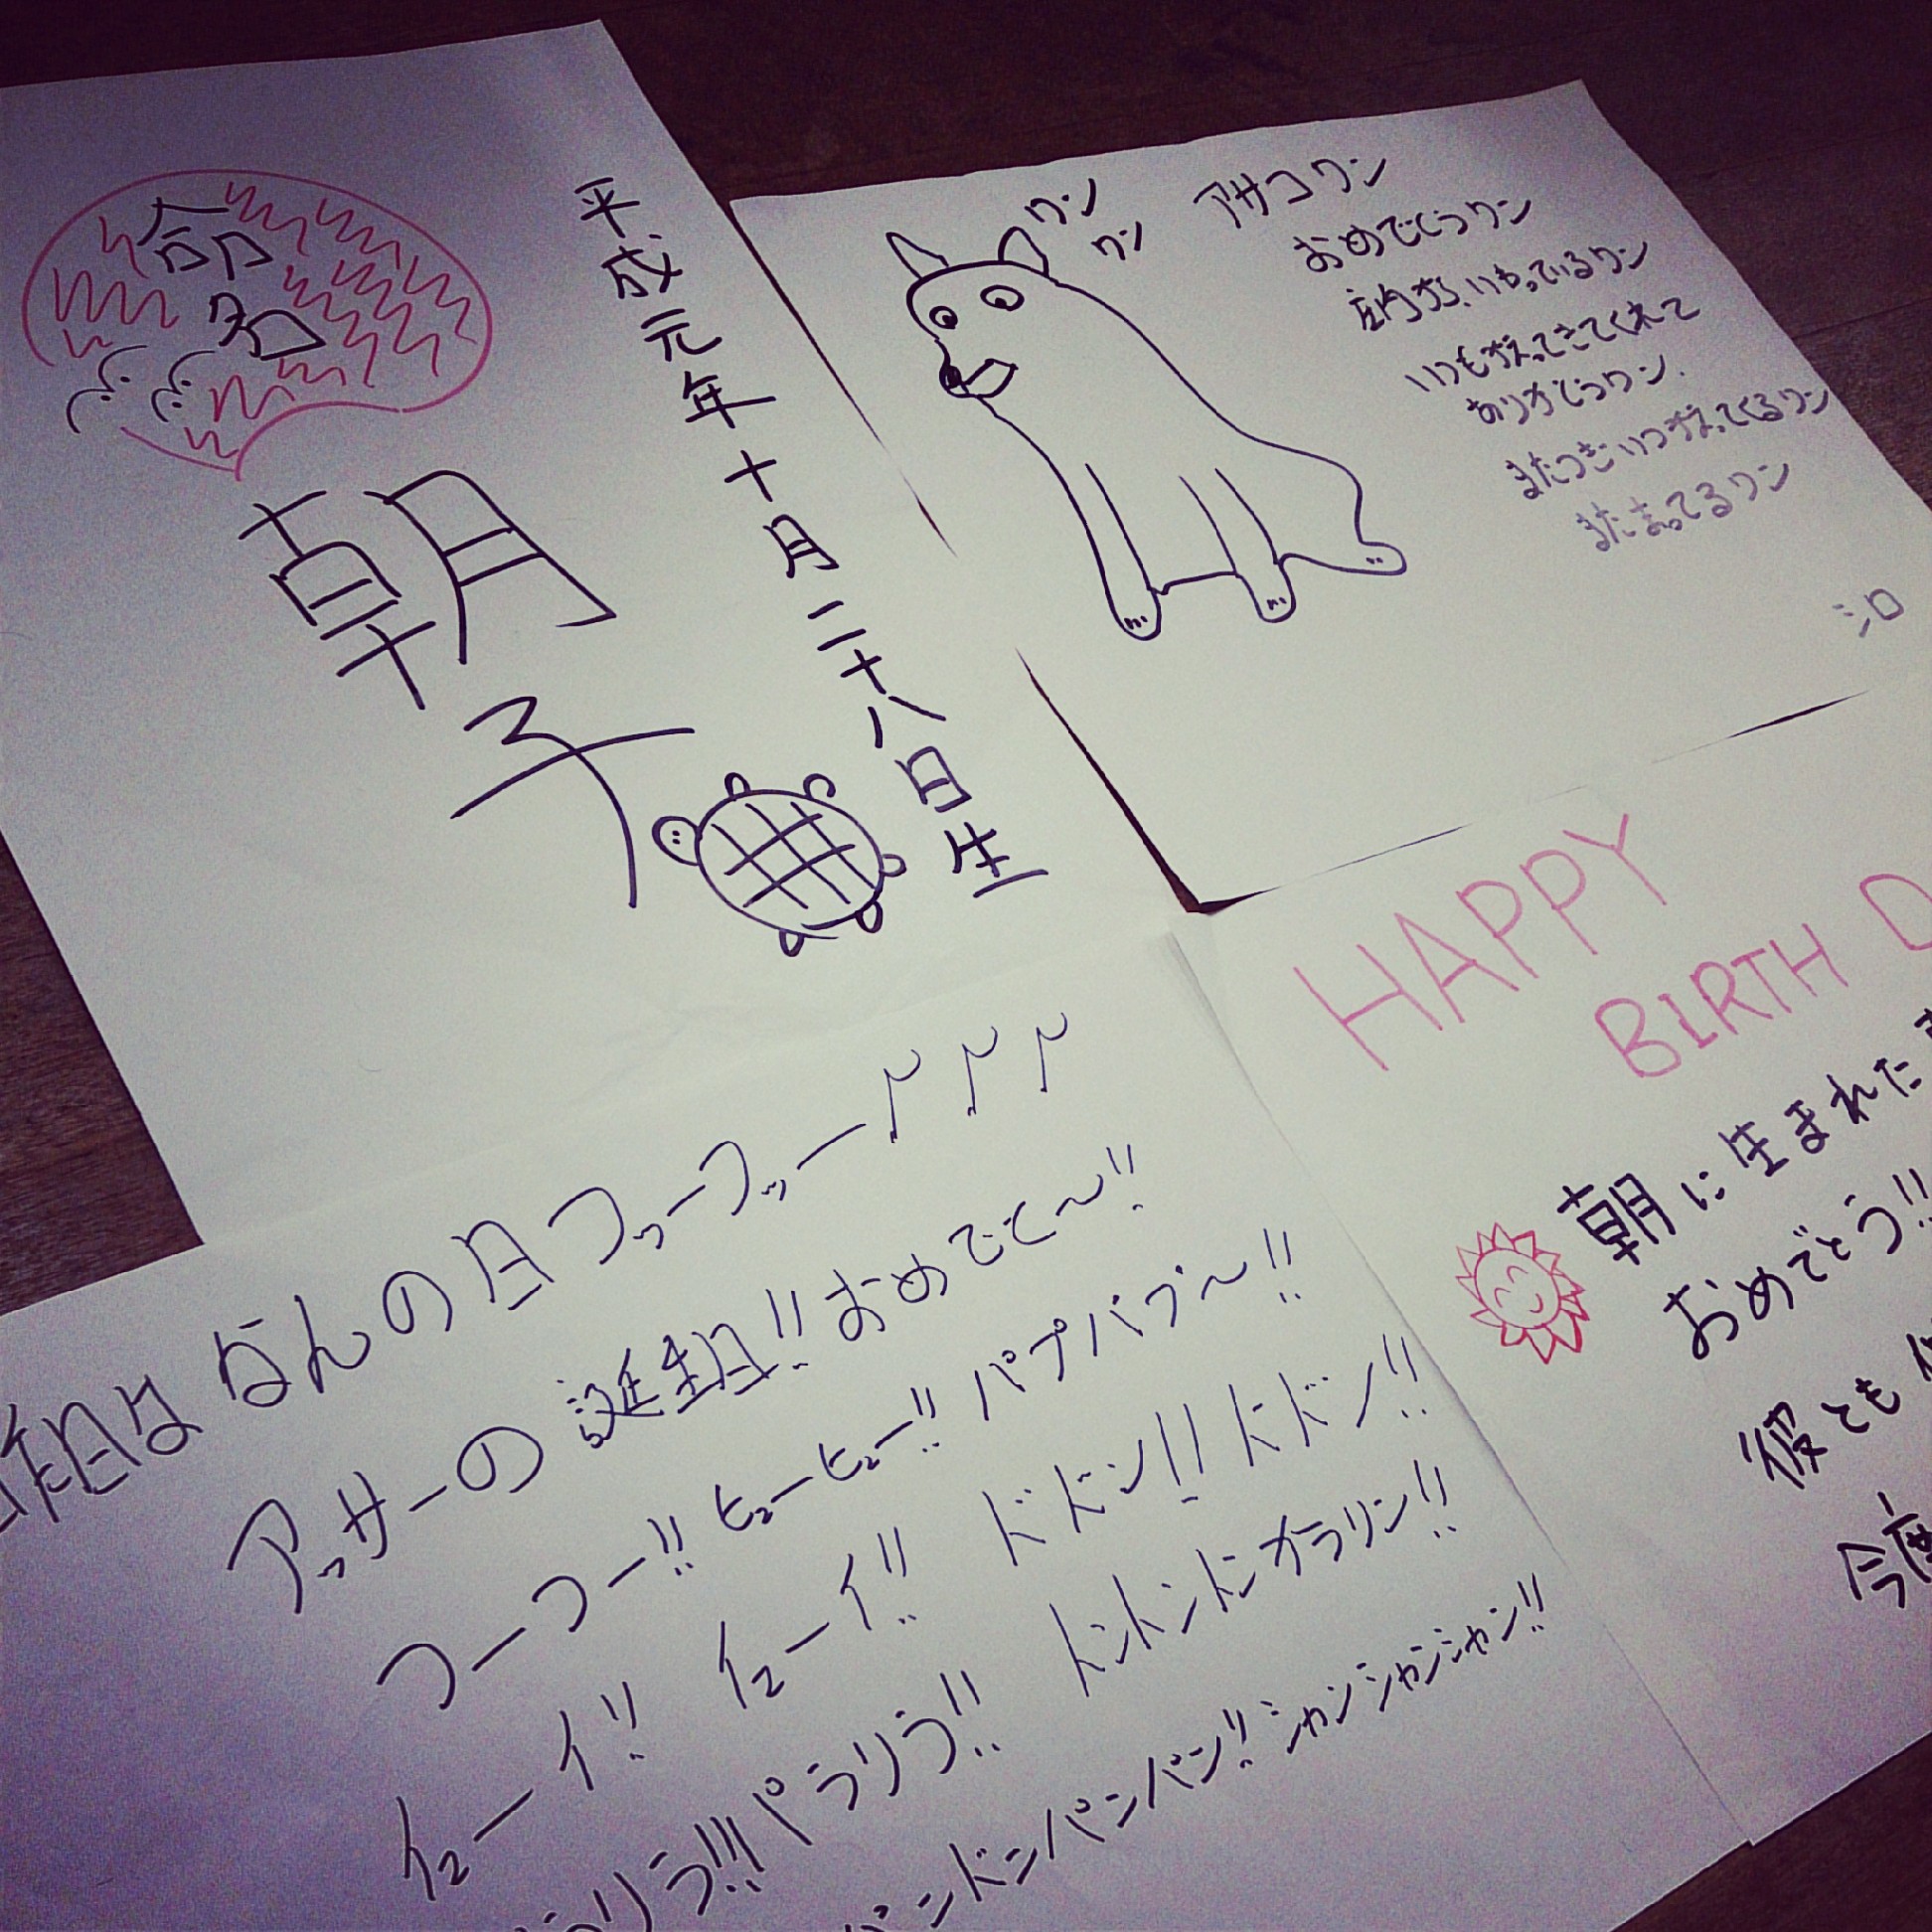 命名
朝子
平成元年十月二十八日生
ワン
ワン
アサコワン
おめでとうワン
いつもかえってきてくれて
ありがとうワン.
またつぎいつかえってくるワン
またまってるワン
シロ
HAPPY
BIRTH D
朝に生まれた
おめでとう!!
彼とも
今度
はなんの日フッフーフッフー♪♪♪
アッサーの誕生日!!おめでとー!!
フーフー!!ヒューヒュー!!パフパフ〜!!
イェーイ!!イェーイ!!ドドン!!ドドン!!
パラリラ!!ドンドンドンカラリン!!
ドンパンパン!!シャンシャンシャン!!